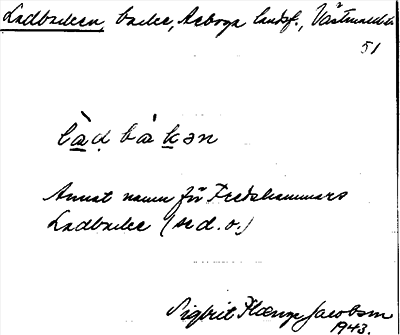 Ladbacken, backe, Arboga landsf., Västmanl. l.
51
l à d b à k ə n
Annat namn för Fredshammars
Ladbacke (se d. o.)
Sigbrit Plænge Jacobson
1943.